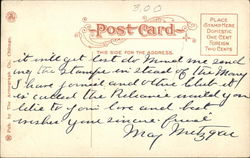 3.00
Post Card
THIS SIDE FOR THE ADDRESS.
PLACE
STAMP HERE
DOMESTIC
ONE CENT
FOREIGN
TWO CENTS
it will get lost do mind me send
ing the stamps in stead of the Money
I have joined another Club it
is called the Reliance until you
to you love and best
wishes your sincere friend
May
Pub. by The Acmegraph Co., Chicago.